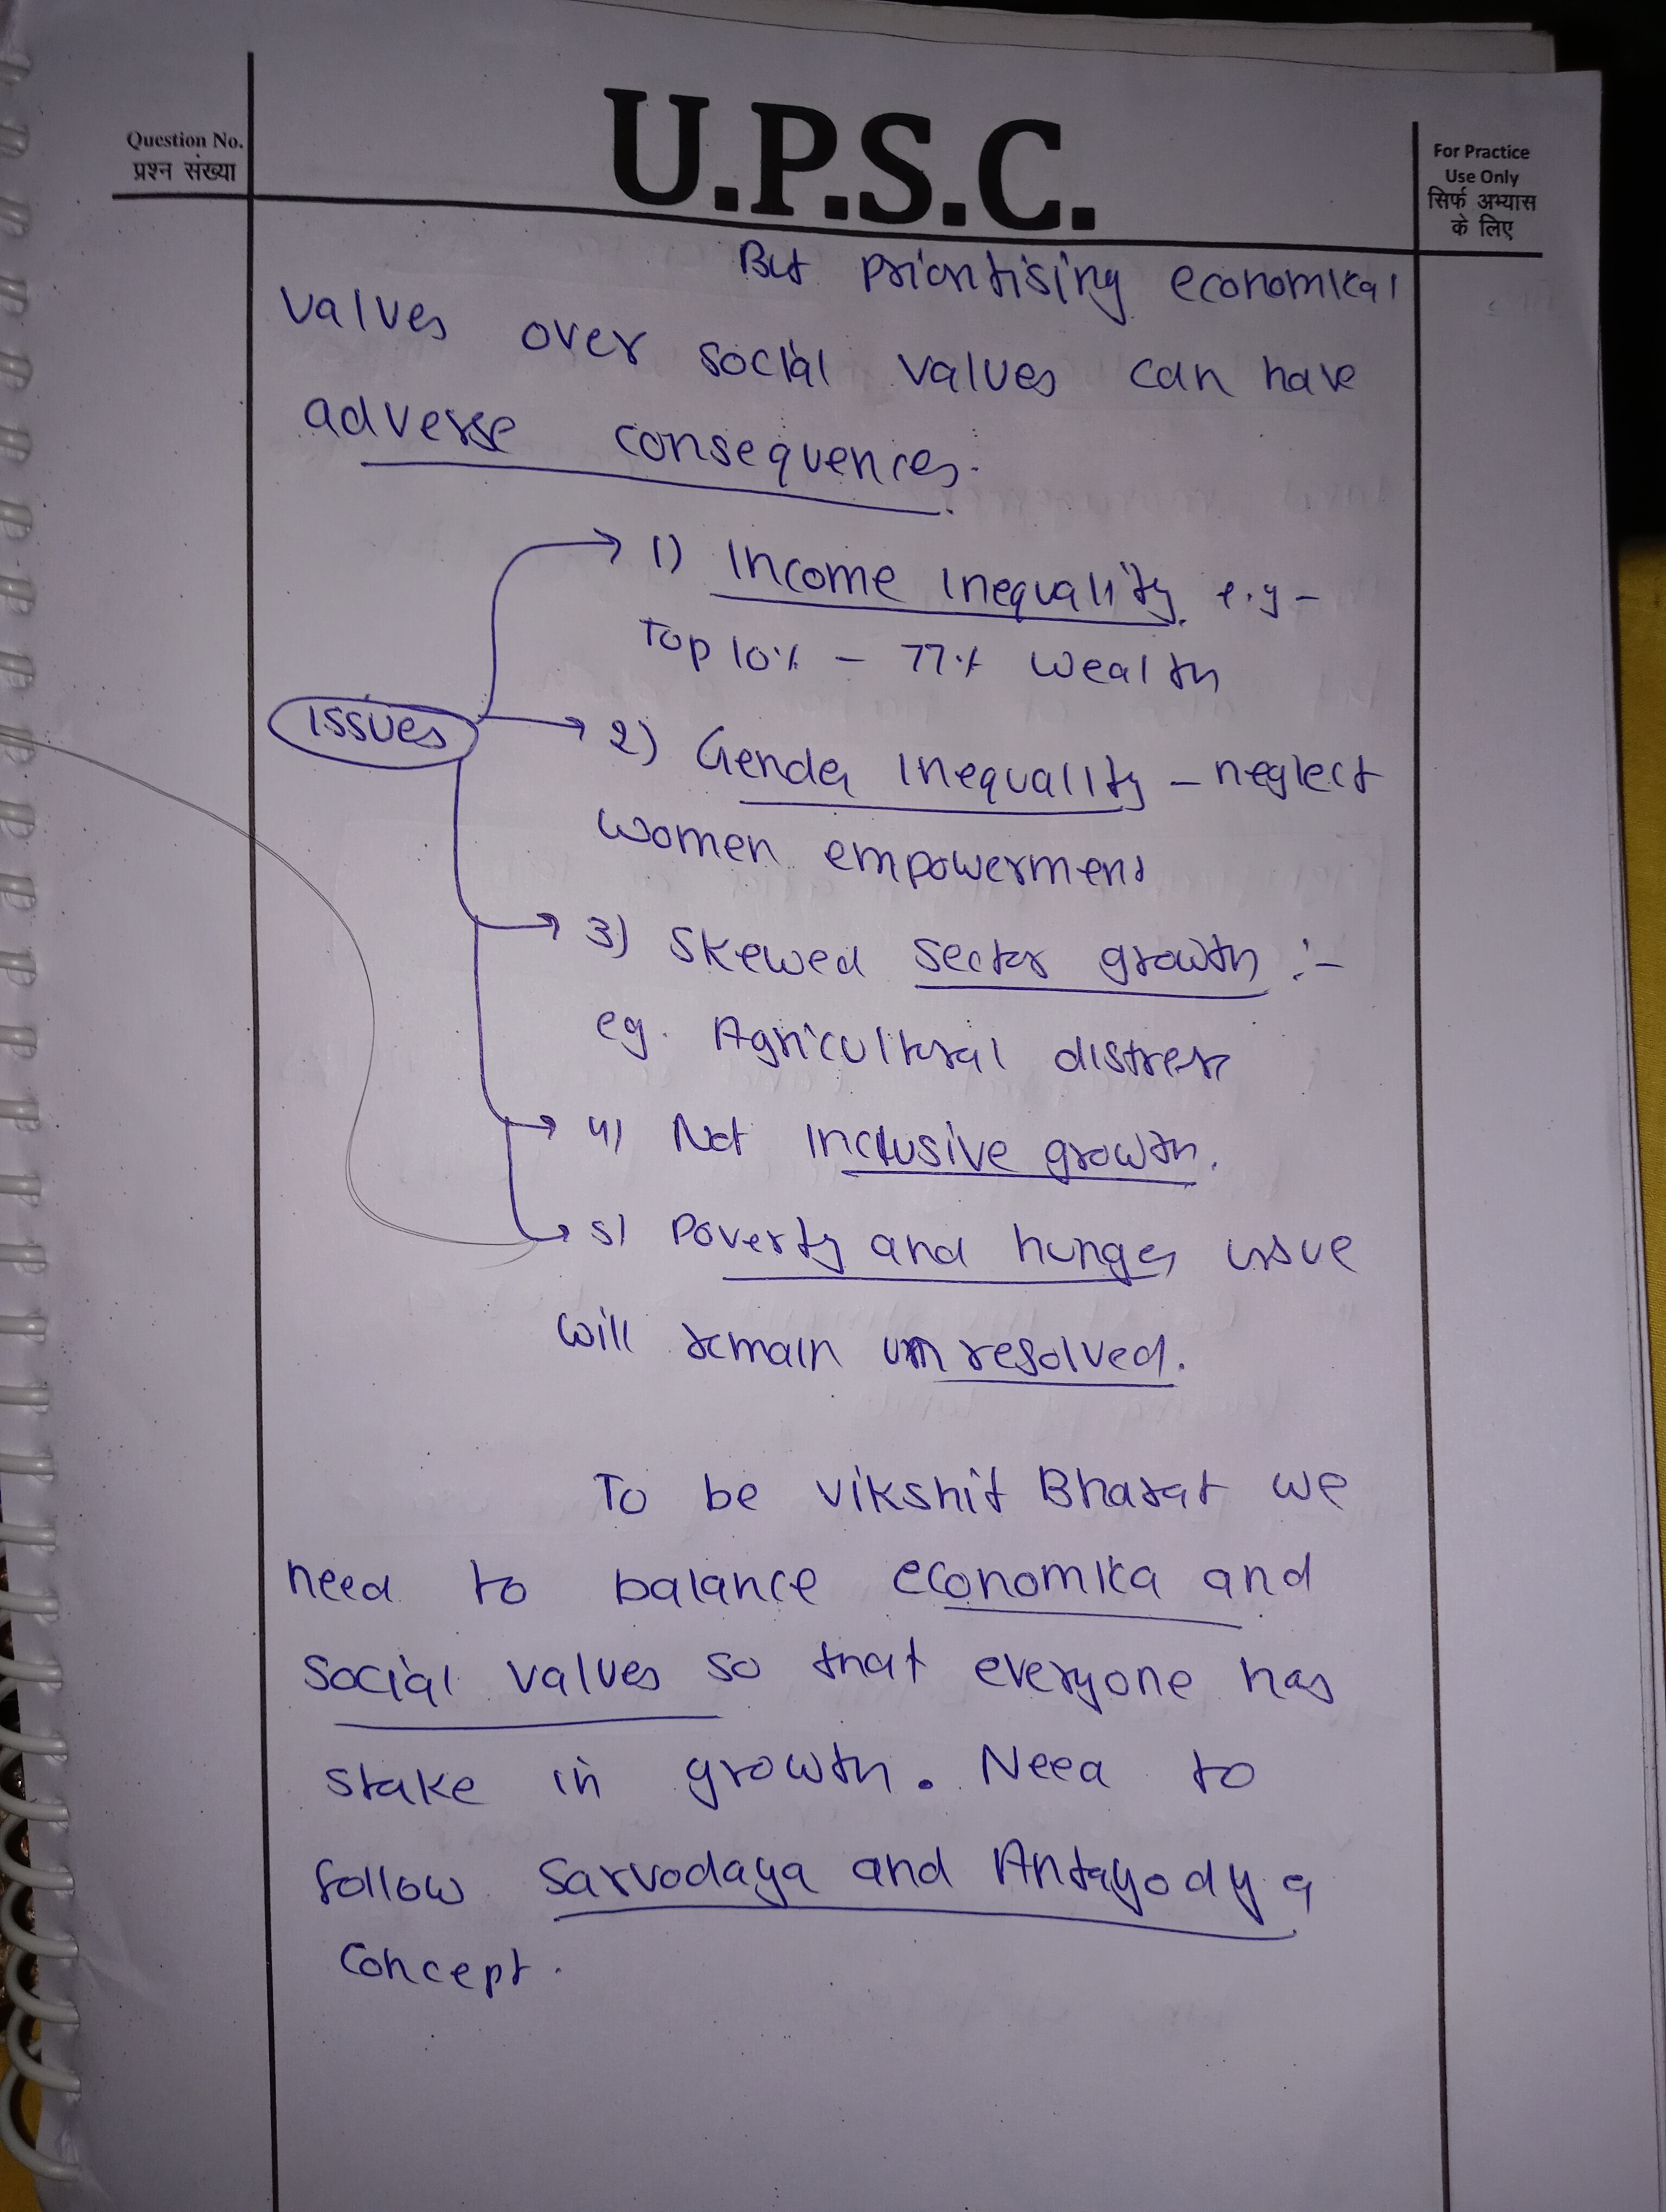 Question No.
प्रश्न संख्या
U.P.S.C.
For Practice
Use Only
सिर्फ अभ्यास
के लिए
But prioritising economical
values over social values can have
adverse consequences.
issues
1) Income Inequality e.g -
Top 10% - 77% wealth
2) Gender Inequality - neglect
women empowerment
3) Skewed sector growth :-
eg. Agricultural distress
4) Not inclusive growth.
5) Poverty and hunger issue
will remain unresolved.
To be vikshit Bharat we
need to balance economica and
social values so that everyone has
stake in growth. Need to
follow sarvodaya and Antayodya
concept.